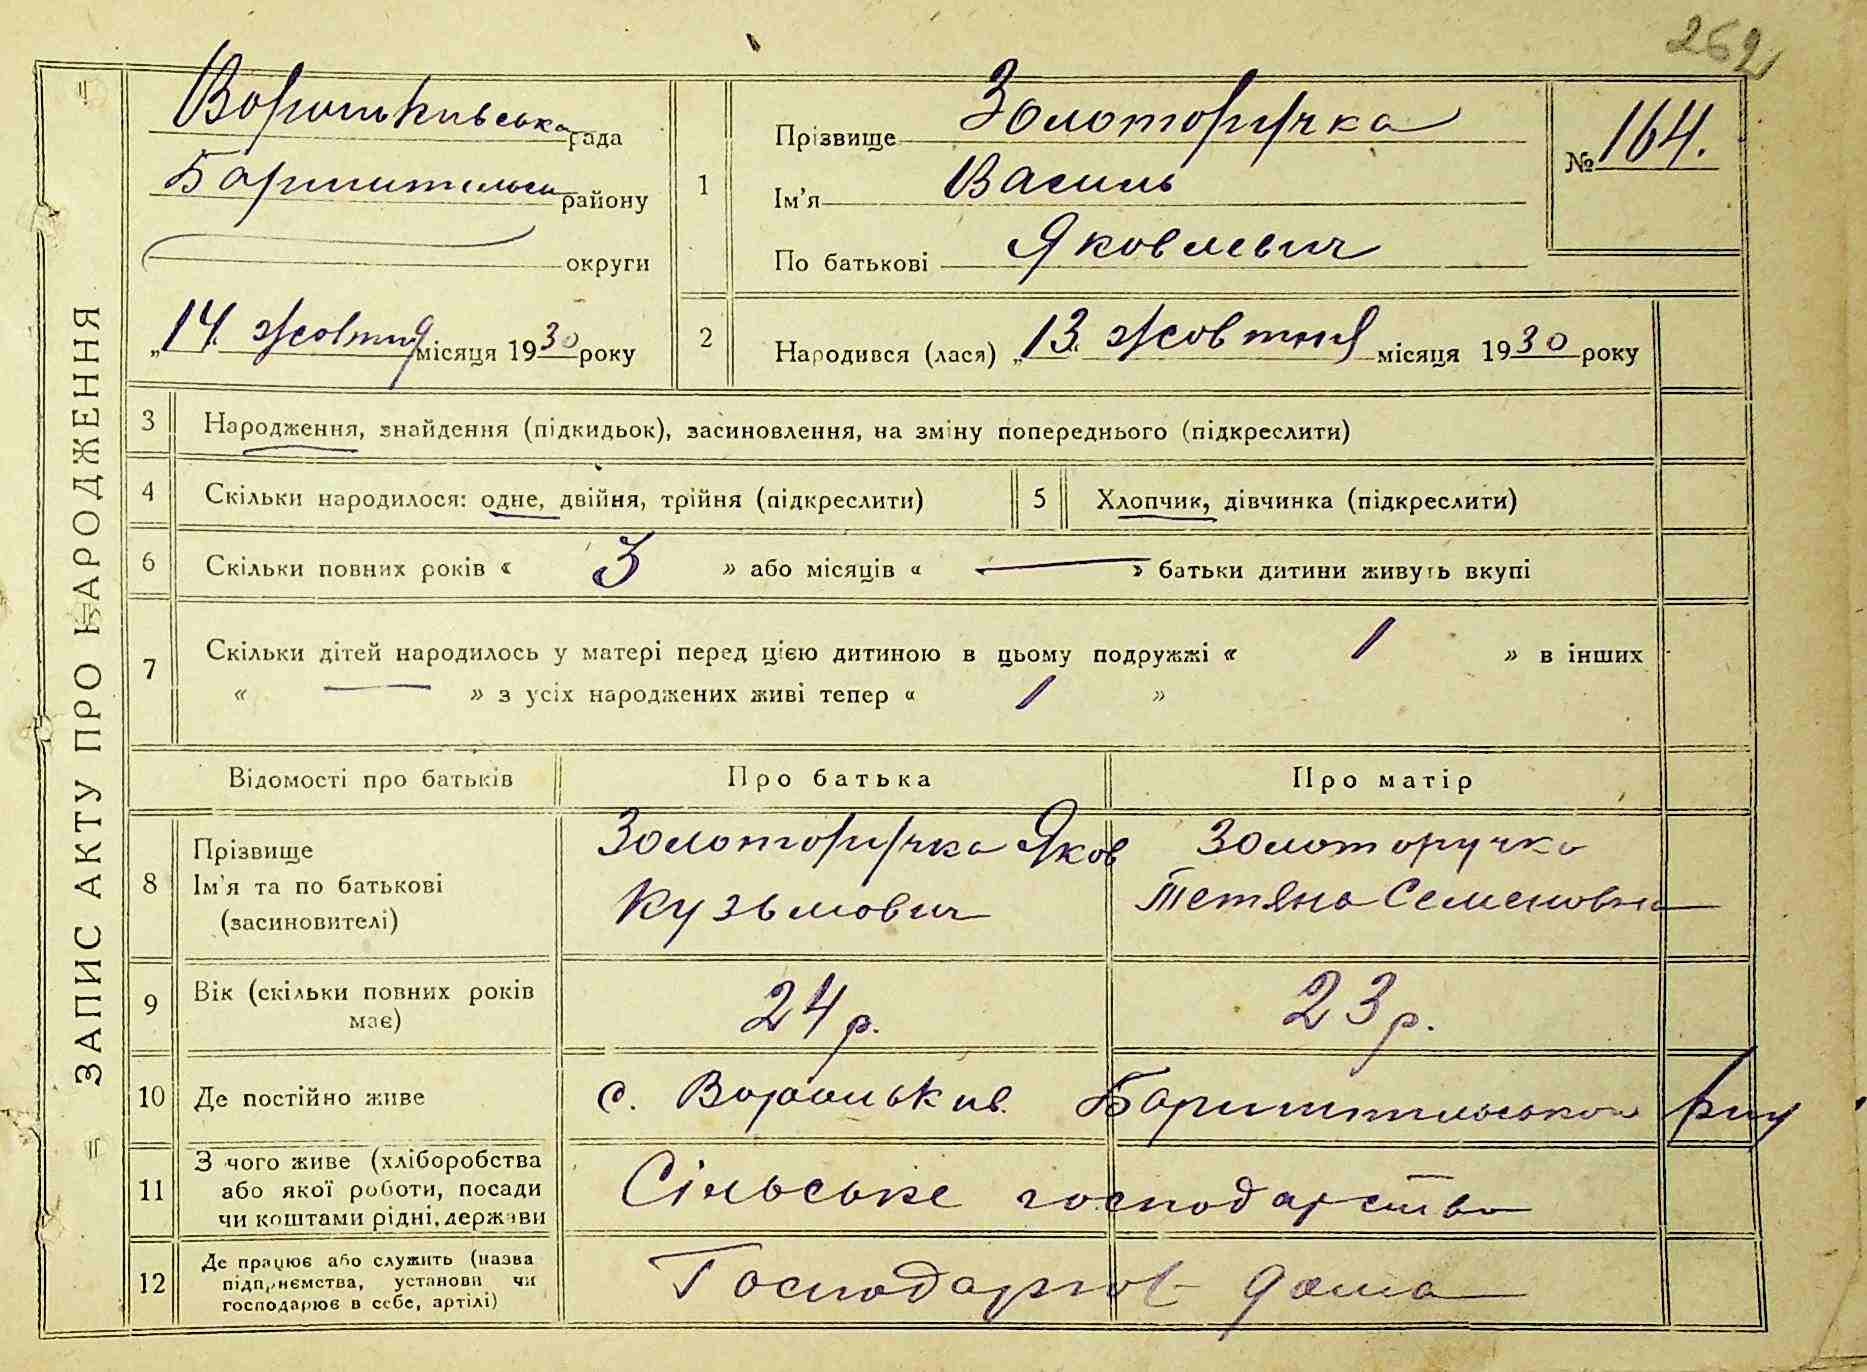 262
ЗАПИС АКТУ ПРО НАРОДЖЕННЯ
Вороньківська рада
району
округи
„14. жовтня місяця 1930 року
1
Прізвище Золоторучка
Ім'я Василь
По батькові Яковлевич
№ 164.
2
Народився (лася) „13" жовтня місяця 1930 року
3 Народження, знайдення (підкидьок), засиновлення, на зміну попереднього (підкреслити)
4 Скільки народилося: одне, двійня, трійня (підкреслити) 5 Хлопчик, дівчинка (підкреслити)
6 Скільки повних років « 3 » або місяців « — » батьки дитини живуть вкупі
7 Скільки дітей народилось у матері перед цією дитиною в цьому подружжі « 1 » в інших
« — » з усіх народжених живі тепер « 1 »
Відомості про батьків Про батька Про матір
8
Прізвище
Ім'я та по батькові
(засиновителі)
Золоторучка Яков
Кузьмович
Золоторучка
Тетяна Семеновна
9 Вік (скільки повних років
має)
24 р. 23 р.
10 Де постійно живе с. Вороньків. Бориспільського р-ну
11 З чого живе (хліборобства
або якої роботи, посади
чи коштами рідні, держави
Сільське господарство
12 Де працює або служить (назва
підприємства, установи чи
господарює в себе, артілі)
дома